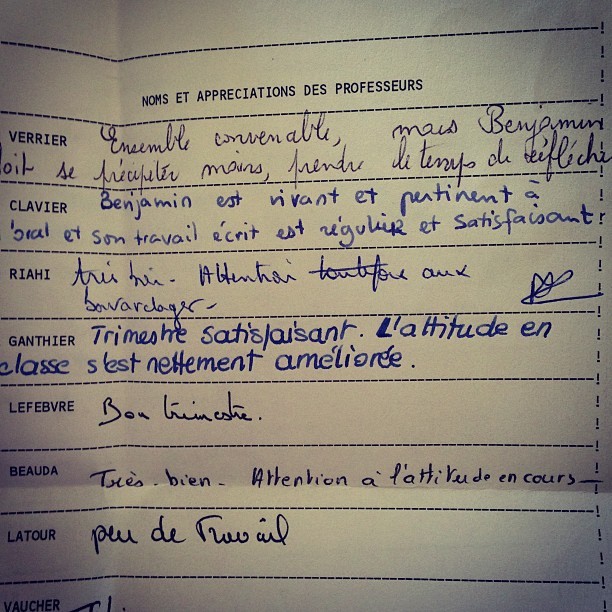 NOMS ET APPRECIATIONS DES PROFESSEURS
VERRIER Ensemble convenable, mais Benjamin
doit se précipiter moins, prendre le temps de réfléchir
CLAVIER Benjamin est vivant et pertinent à
l'oral et son travail écrit est régulier et satisfaisant
RIAHI très bien - Attention toutefois aux
bavardages -
GANTHIER Trimestre satisfaisant. L'attitude en
classe s'est nettement améliorée.
LEFEBVRE Bon trimestre.
BEAUDA Très bien - Attention à l'attitude en cours -
LATOUR peu de Travail
VAUCHER